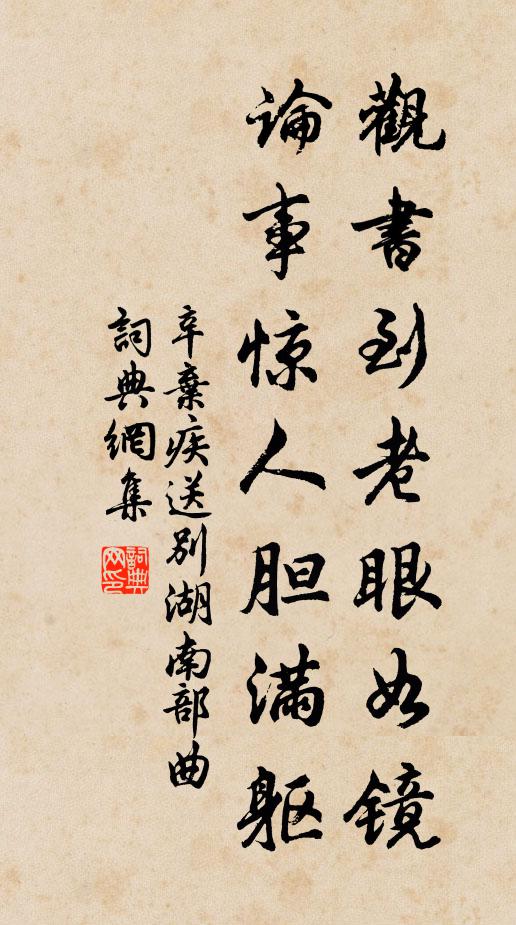 觀書到老眼如镜
論事惊人胆滿躯
辛棄疾送别湖南部曲
詞典網集
詞典网印